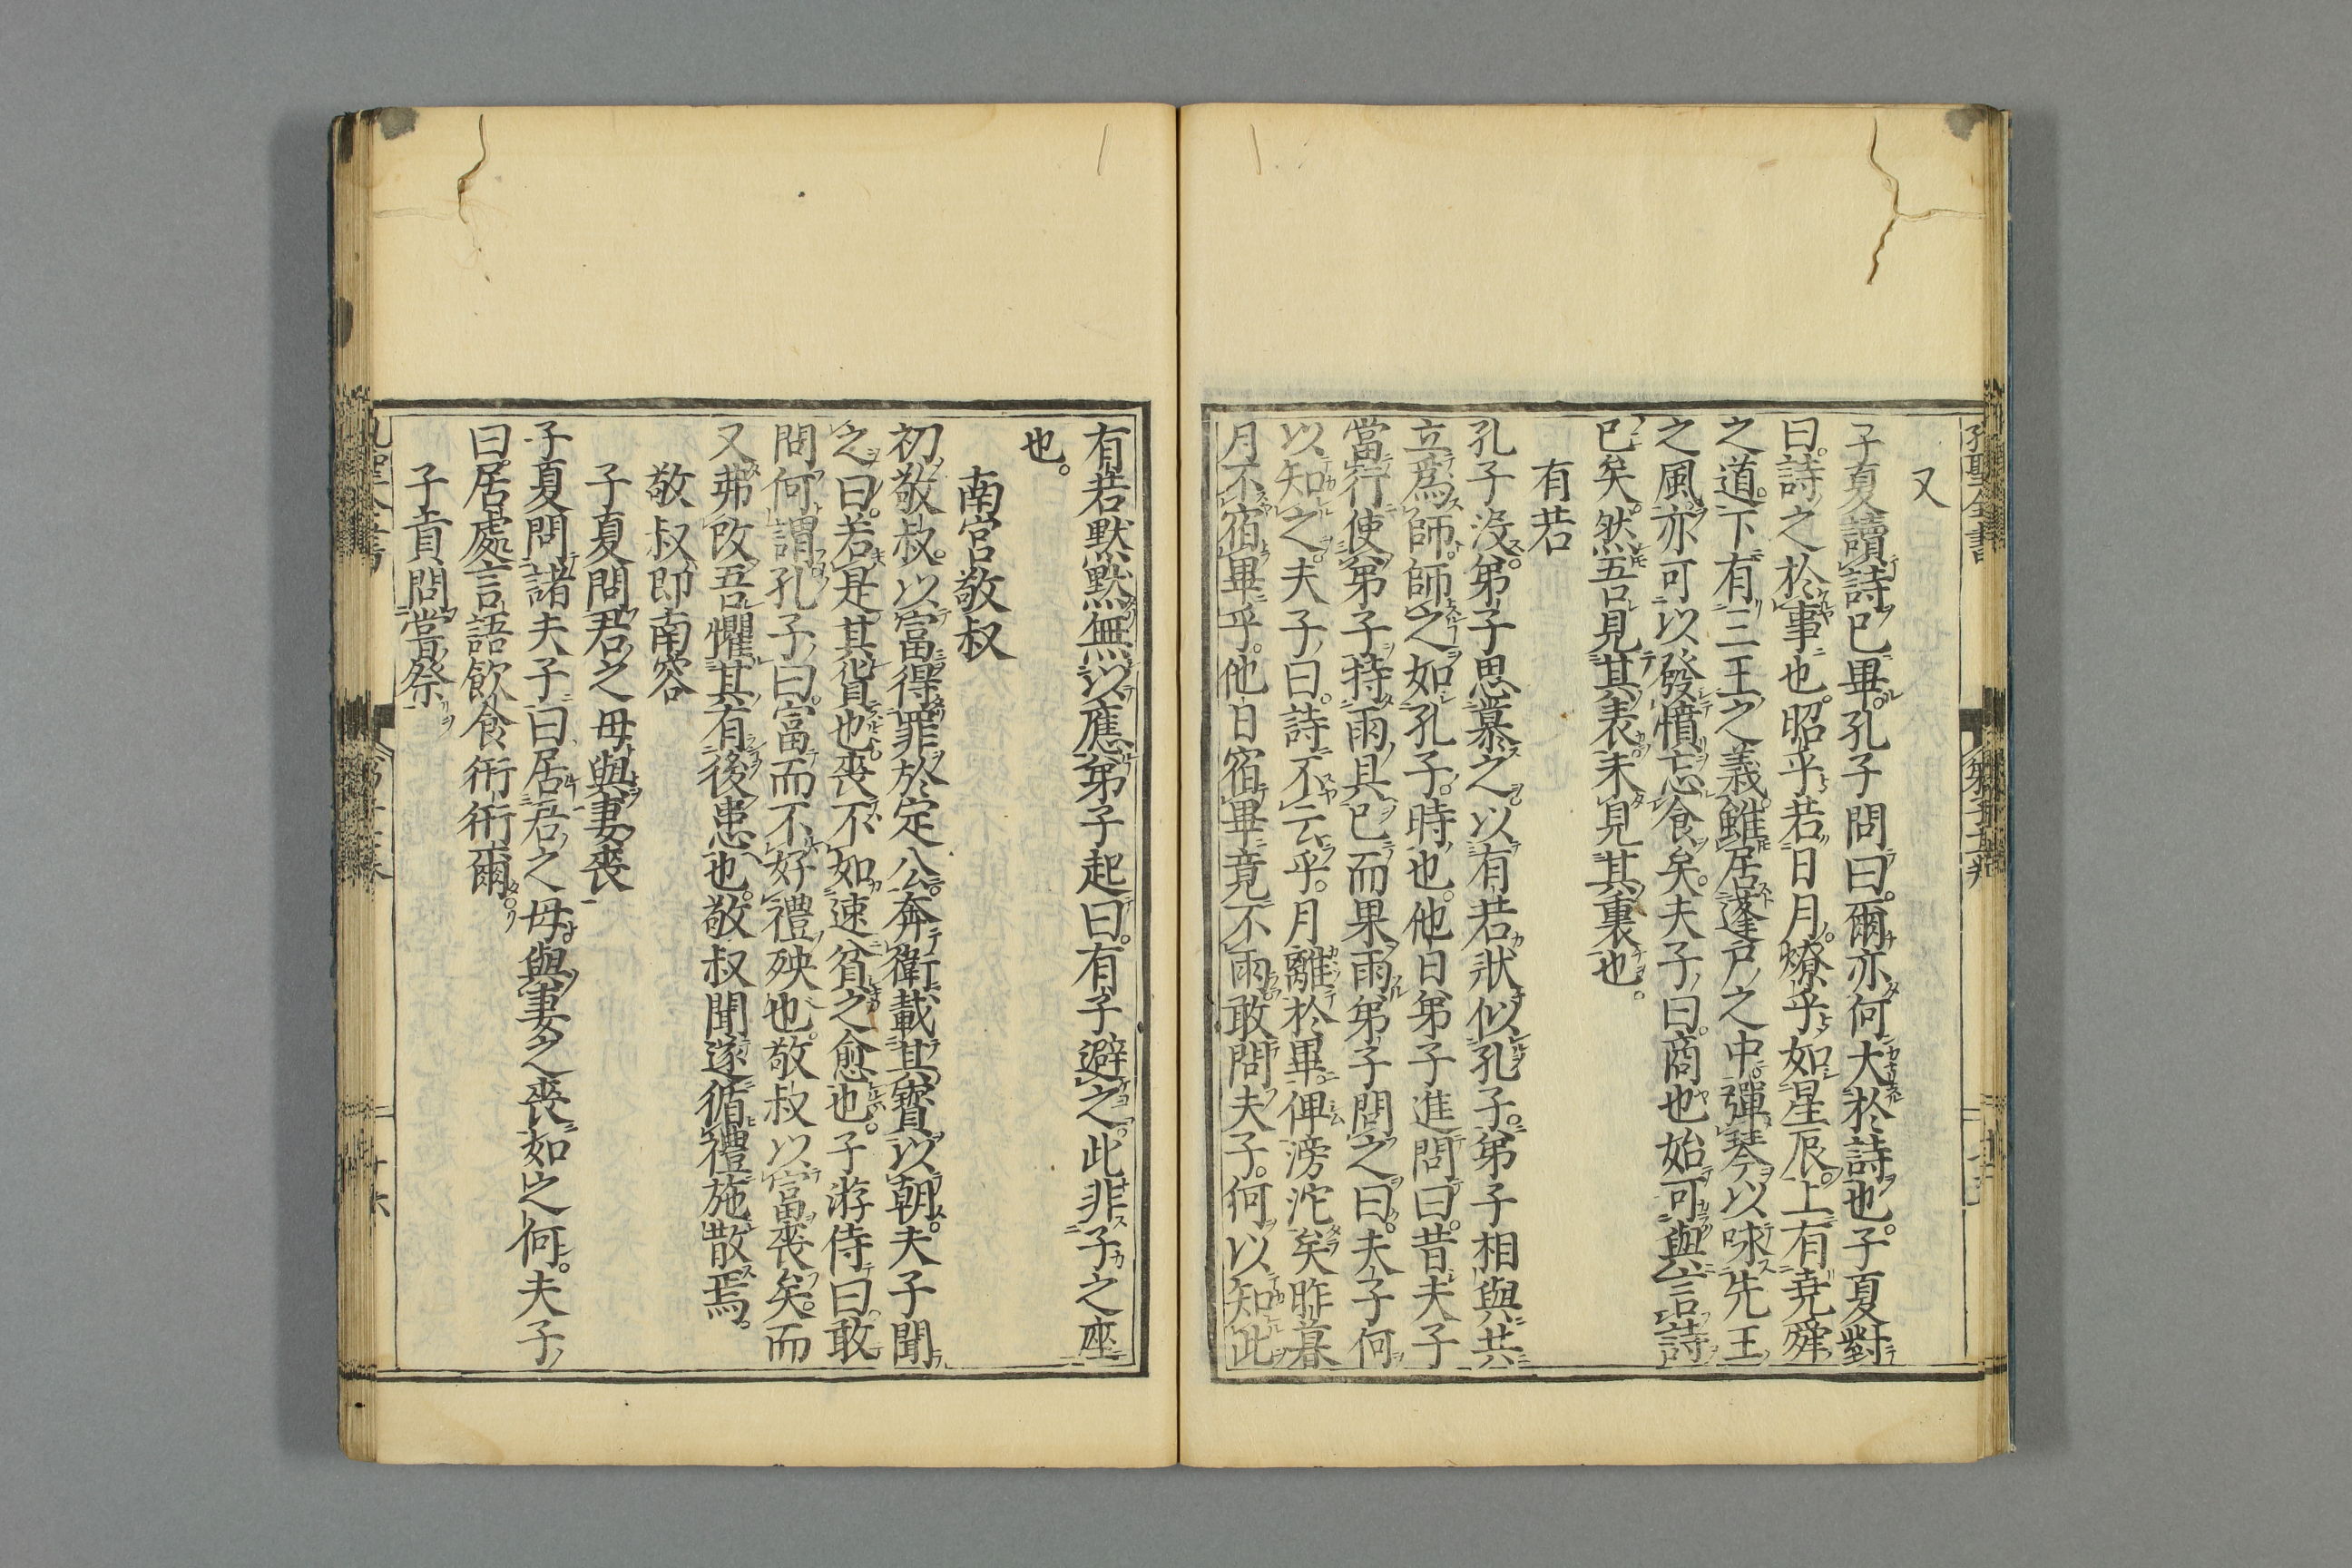 孔聖全書
又
子夏讀詩已畢。孔子問曰。爾亦何大於詩也。子夏對
曰。詩之於事也。昭乎若日月。燎乎如星辰。上有堯舜
之道。下有三王之義。雖居蓬戶之中。彈琴以咏先王
之風。亦可以發憤忘食矣。夫子曰。商也始可與言詩
已矣。然吾見其表未見其裏也。
有若
孔子没。弟子思慕之。以有若狀似孔子。弟子相與共
立爲師。師之如孔子。時也。他日弟子進問曰。昔夫子
當行使弟子持雨具。已而果雨。弟子問之曰。夫子何
以知之。夫子曰。詩不云乎。月離於畢。俾滂沱矣。昨暮
月不宿畢乎。他日月宿畢竟不雨。敢問夫子。何以知此
有若默默無以應。弟子起曰。有子避之。此非子之座
也。
南宮敬叔
初敬叔。以富得罪於定公。奔衛載其寳以朝。夫子聞
之曰。若是其貨也。喪不如速貧之愈也。子游侍曰。敢
問何謂。孔子曰。富而不好禮殃也。敬叔以富喪矣。而
又弗改吾懼其有後患也。敬叔聞遂循禮施散焉。
敬叔即南容
子夏問君之母與妻喪
子夏問諸夫子曰居君之母與妻之喪如之何。夫子
曰。居處言語飲食衎衎爾。
子貢問嘗祭